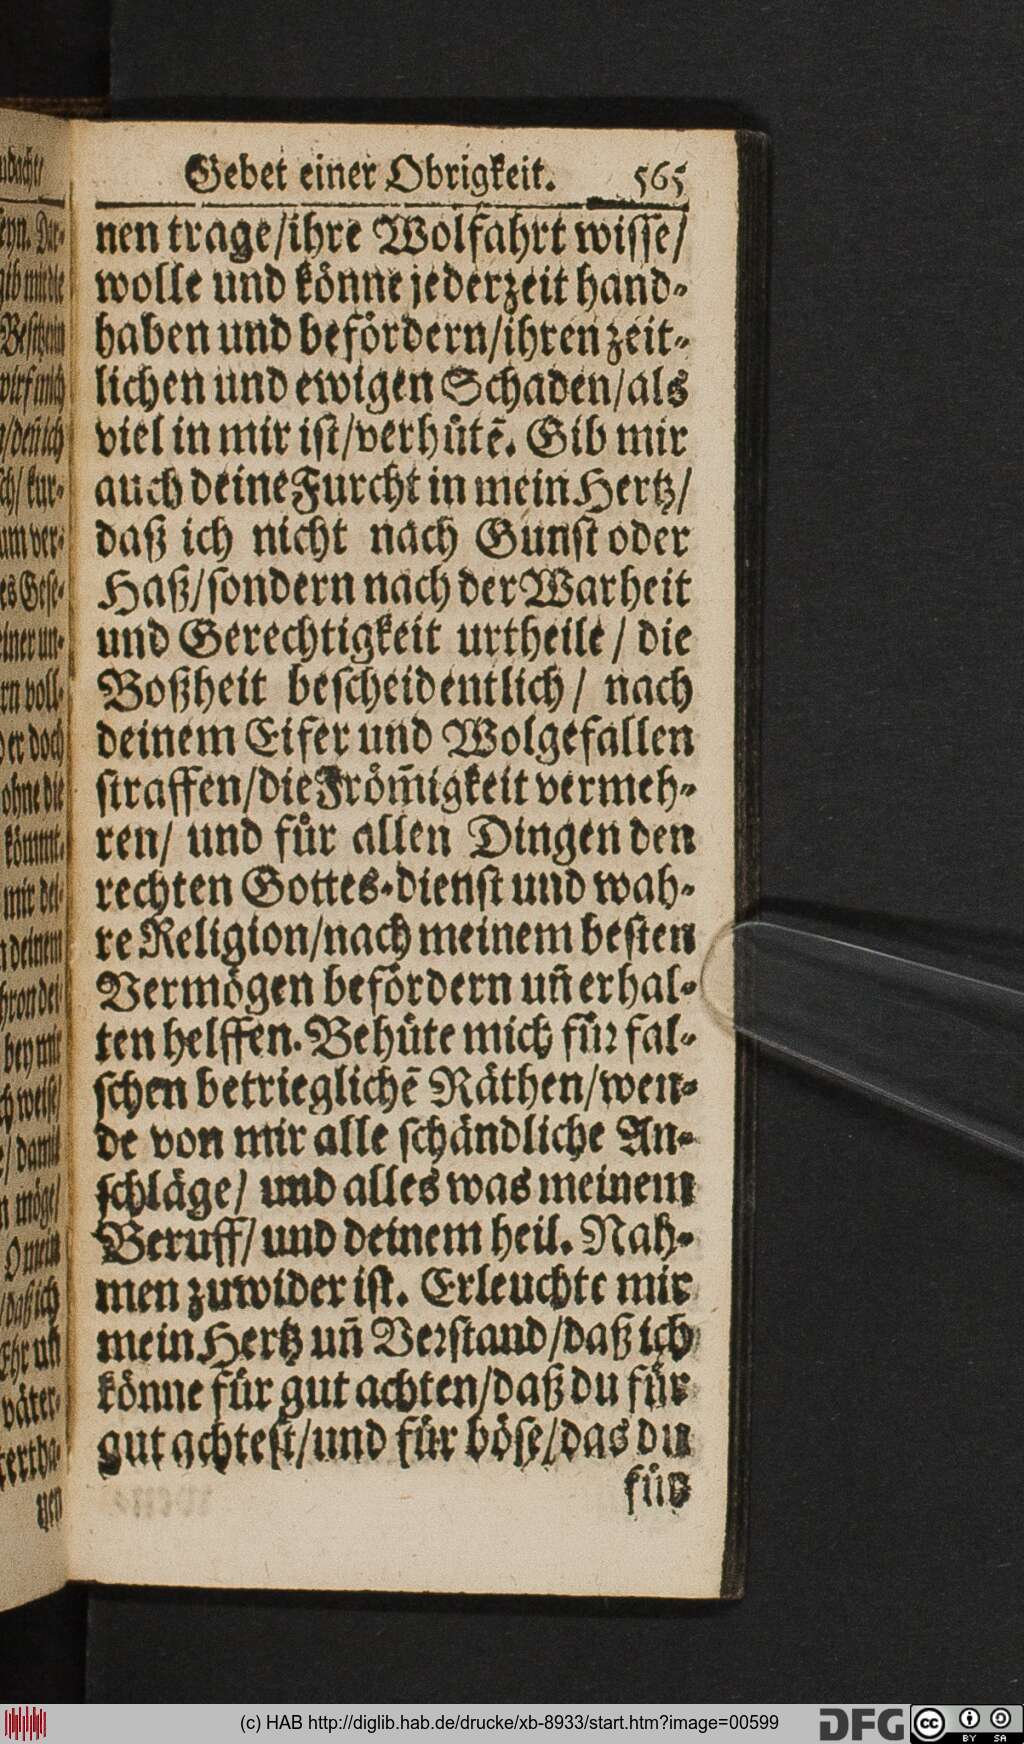 Gebet einer Obrigkeit. 565
nen trage/ihre Wolfahrt wisse/
wolle und könne jederzeit hand-
haben und befördern/ihren zeit-
lichen und ewigen Schaden/als
viel in mir ist/verhütē. Gib mir
auch deine Furcht in mein Hertz/
daß ich nicht nach Gunst oder
Haß/sondern nach der Warheit
und Gerechtigkeit urtheile/ die
Boßheit bescheidentlich/ nach
deinem Eifer und Wolgefallen
straffen/die Fröm̃igkeit vermeh-
ren/ und für allen Dingen den
rechten Gottes-dienst und wah-
re Religion/nach meinem besten
Vermögen befördern uñ erhal-
ten helffen. Behüte mich für fal-
schen betrieglichē Räthen/wen-
de von mir alle schändliche An-
schläge/ und alles was meinem
Beruff/ und deinem heil. Nah-
men zuwider ist. Erleuchte mir
mein Hertz uñ Verstand/daß ich
könne für gut achten/daß du für
gut achtest/und für böse/das du
für
(c) HAB http://diglib.hab.de/drucke/xb-8933/start.htm?image=00599
DFG
cc BY SA